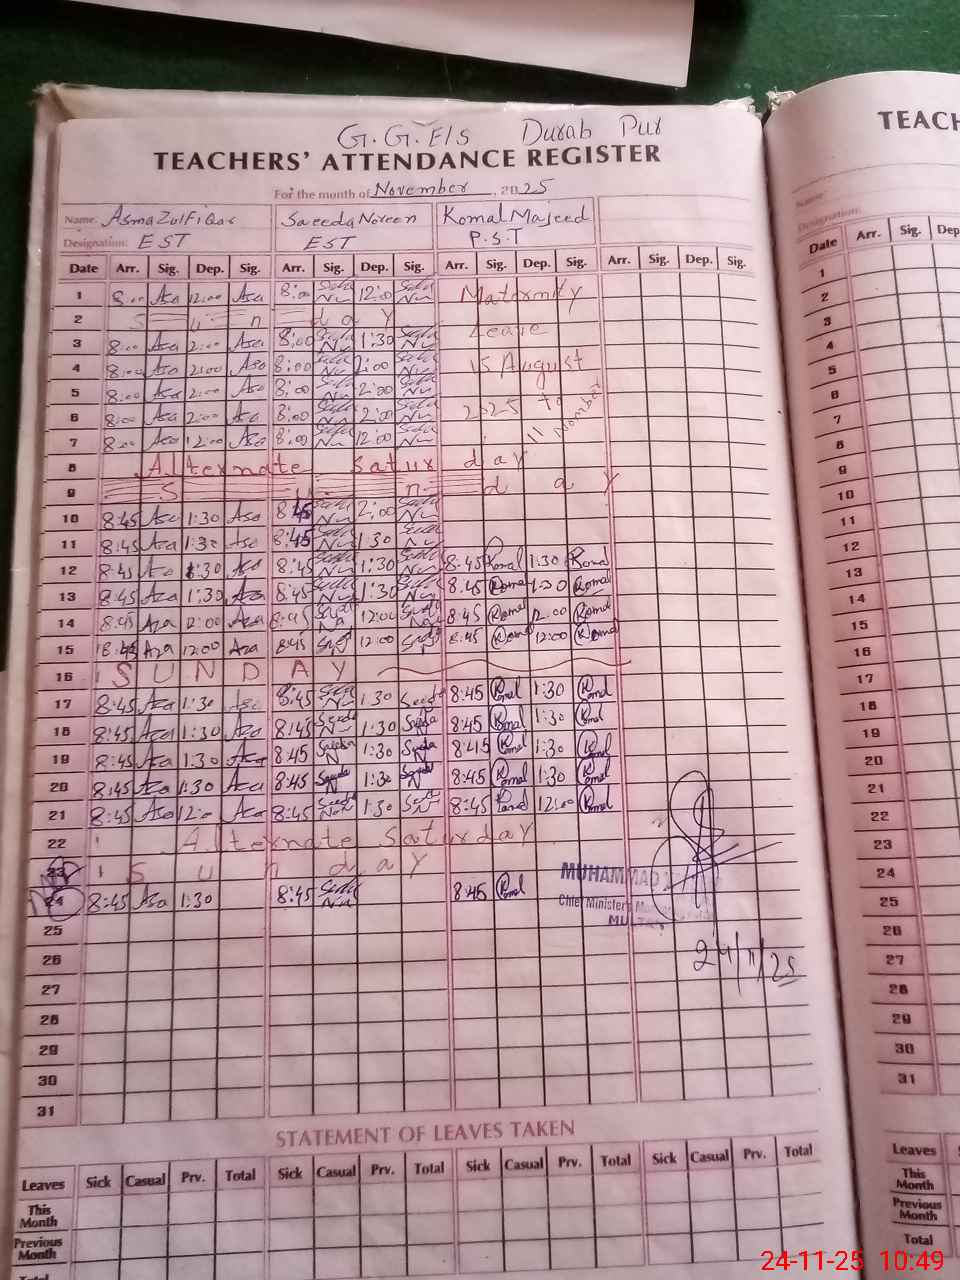 G.G.E/S Durab Pur
TEACHERS' ATTENDANCE REGISTER
For the month of November, 2025
Name: Asma ZulFiQar Saeeda Noreen Komal Majeed
Designation: EST EST P.S.T
Date Arr. Sig. Dep. Sig. Arr. Sig. Dep. Sig. Arr. Sig. Dep. Sig. Arr. Sig. Dep. Sig.
1 8:00 Asa 12:00 Asa 8:00 12:00 Maternity
2 S u n d a y
3 8:00 Asa 2:00 Asa 8:00 1:30 Leave
4 8:00 Asa 2:00 Asa 8:00 2:00 15 August
5 8:00 Asa 2:00 Asa 8:00 2:00
6 8:00 Asa 2:00 Asa 8:00 2:00 2025 to
7 8:00 Asa 12:00 Asa 8:00 12:00 11
8 Alternate Satur day
9 S u n d a y
10 8:45 Asa 1:30 Asa 8:45 2:00
11 8:45 Asa 1:30 Asa 8:45 1:30
12 8:45 Asa 1:30 Asa 8:45 1:30 8:45 Komal 1:30 Komal
13 8:45 Aza 1:30 Aza 8:45 1:30 8:45 Komal 1:30 Komal
14 8:45 Aza 12:00 Aza 8:45 12:00 8:45 Komal 12:00 Komal
15 8:45 Aza 12:00 Aza 8:45 12:00 8:45 Komal 12:00 Komal
16 S U N D A Y
17 8:45 Aza 1:30 Asa 8:45 1:30 8:45 Komal 1:30 Komal
18 8:45 Aza 1:30 Aza 8:45 1:30 8:45 Komal 1:30 Komal
19 8:45 Aza 1:30 Aza 8:45 1:30 8:45 Komal 1:30 Komal
20 8:45 Aza 1:30 Aza 8:45 1:30 8:45 Komal 1:30 Komal
21 8:45 Asa 12:00 Aza 8:45 1:30 8:45 Komal 12:00 Komal
22 Alternate Saturday
23 S u n d a y
MUHAMMAD
24 8:45 Asa 1:30 8:45 8:45 Komal
Chief Minister's
MULTAN
25
24/11/25
26
27
28
29
30
31
STATEMENT OF LEAVES TAKEN
Leaves Sick Casual Prv. Total Sick Casual Prv. Total Sick Casual Prv. Total Sick Casual Prv. Total
This Month
Previous Month
Total
TEACH
Name:
Designation:
Date Arr. Sig. Dep
1
2
3
4
5
6
7
8
9
10
11
12
13
14
15
16
17
18
19
20
21
22
23
24
25
26
27
28
29
30
31
Leaves
This Month
Previous Month
Total
24-11-25 10:49